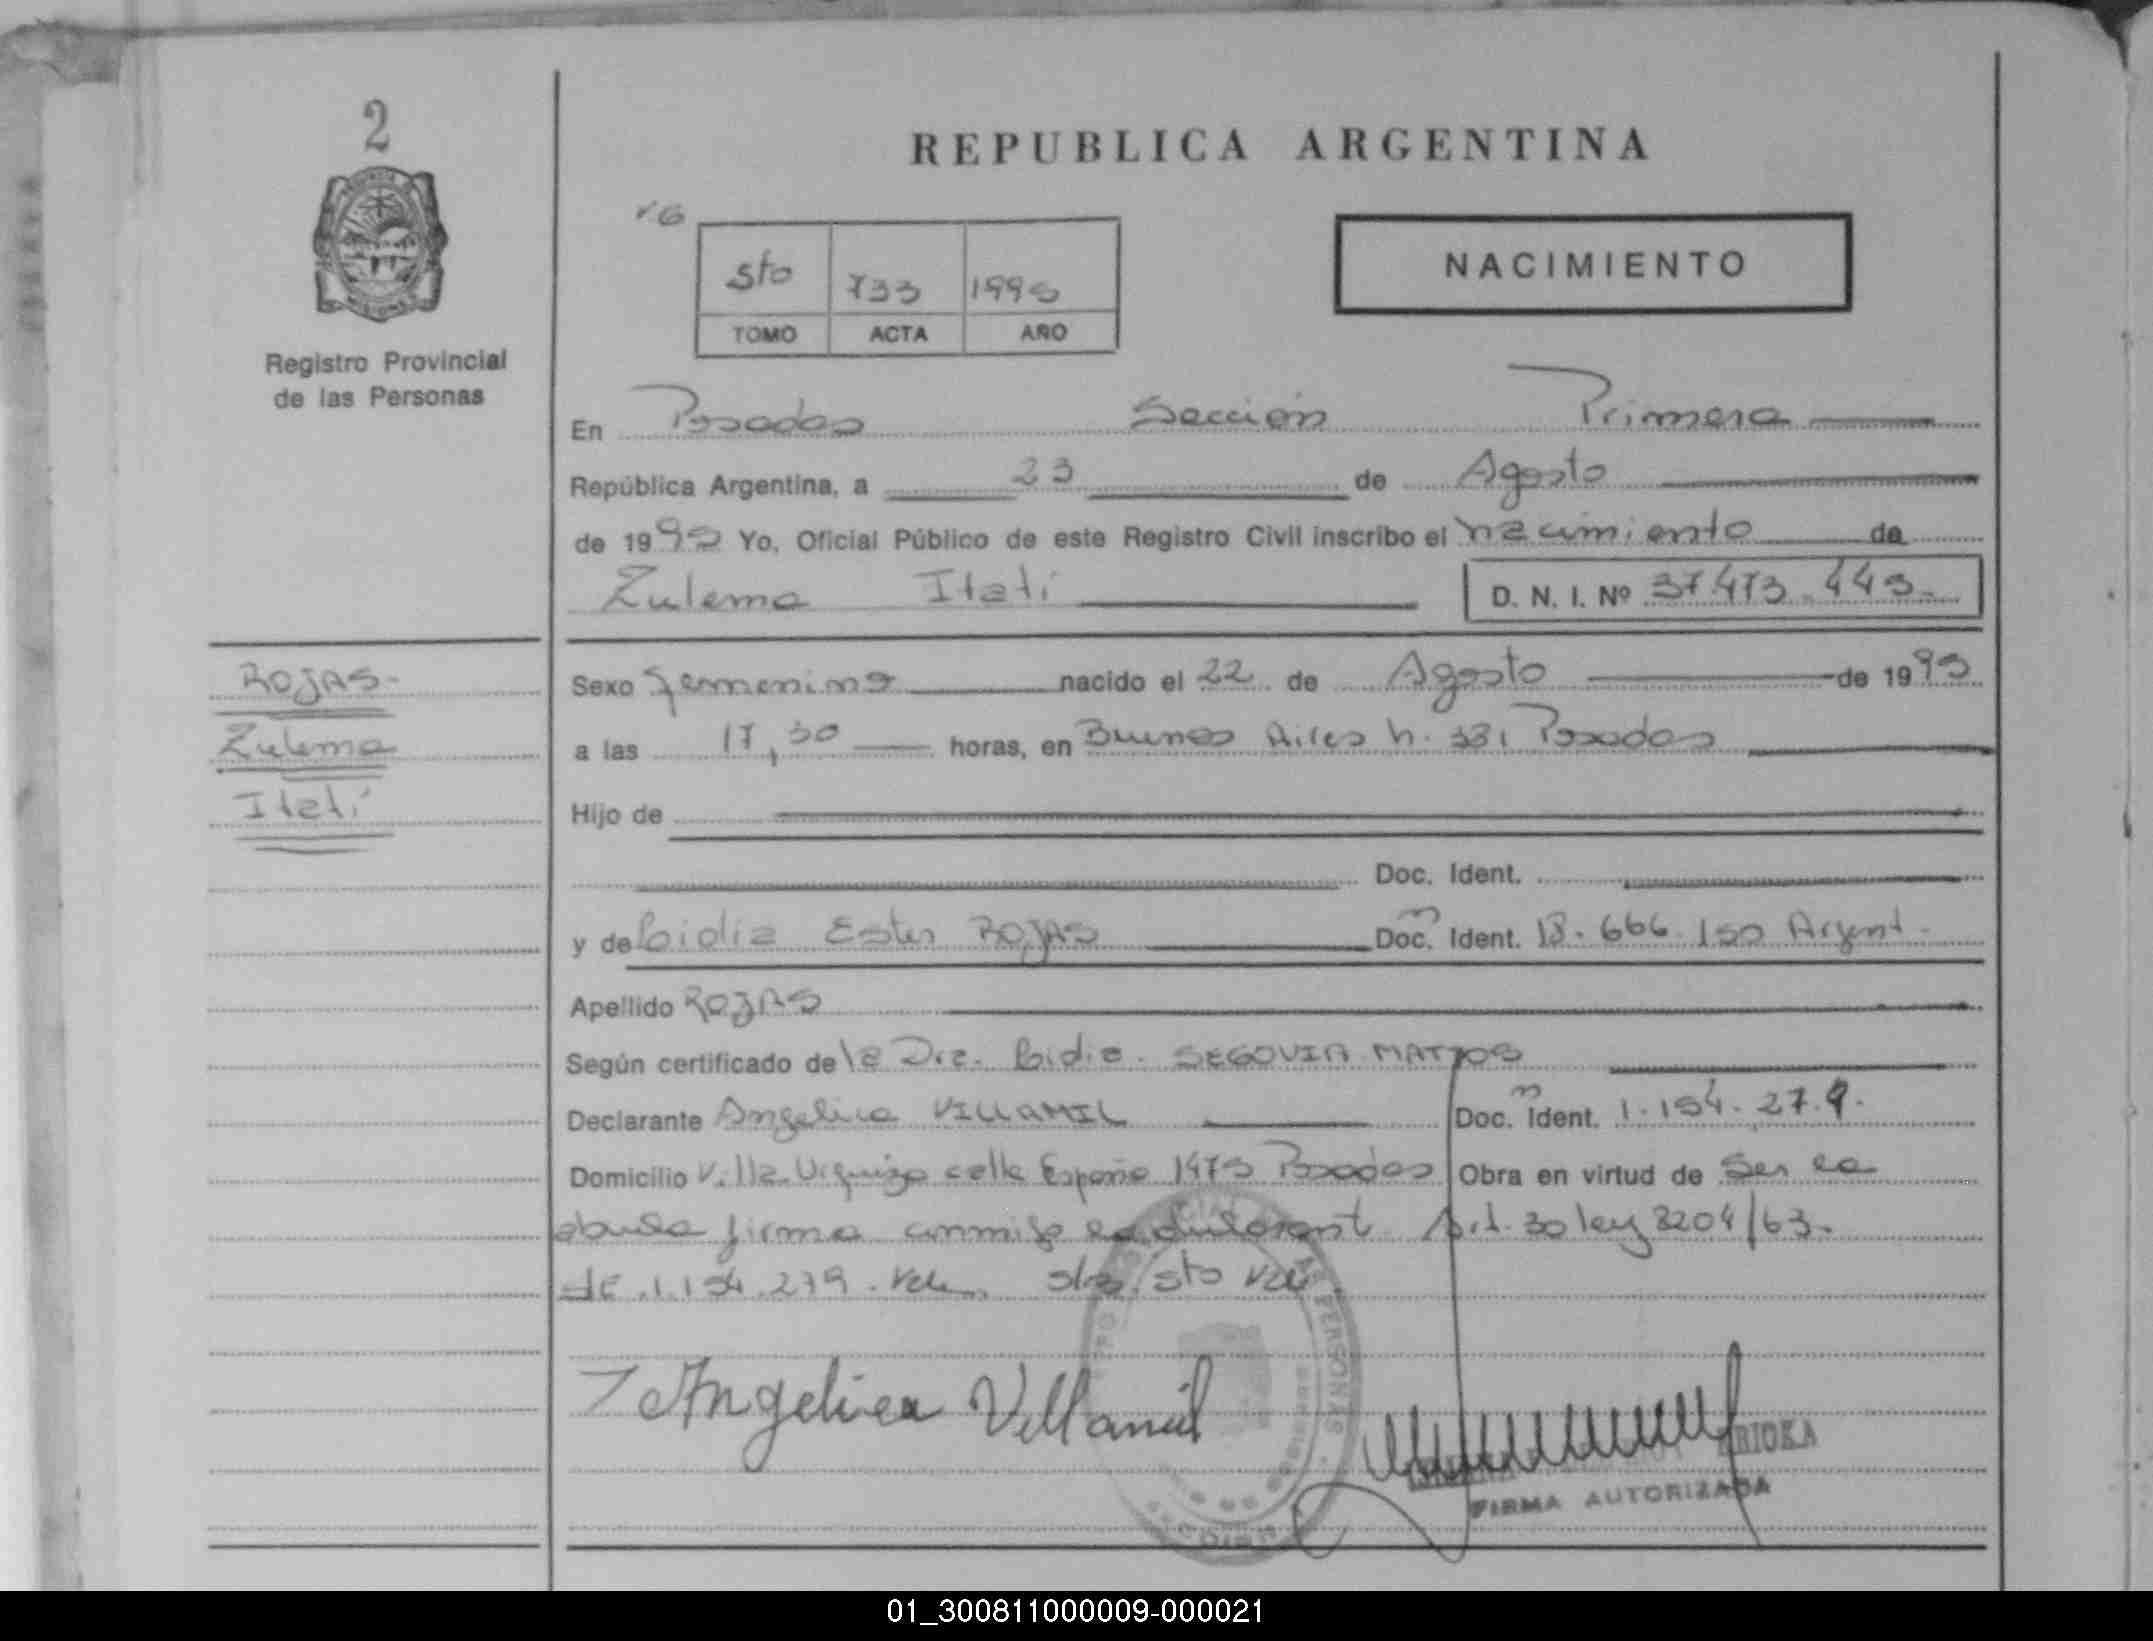 2
REPUBLICA ARGENTINA
NACIMIENTO
5to 733 1995
TOMO ACTA AÑO
Registro Provincial
de las Personas
En Posadas Sección Primera
República Argentina, a 23 de Agosto
de 1995 Yo, Oficial Público de este Registro Civil inscribo el nacimiento de
Zulema Itatí D. N. I. Nº 37.473.443.
ROJAS.
Zulema
Itatí
Sexo femenino nacido el 22 de Agosto de 1993
a las 17,30 horas, en Buenos Aires n. 381 Posadas
Hijo de
Doc. Ident.
y de Lidia Ester ROJAS Doc. Ident. 18.666.150 Argent.
Apellido ROJAS
Según certificado de la Dra. Lidia SEGOVIA MATTOS
Declarante Angelica VILLAMIL Doc. Ident. 1.154.279.
Domicilio Villa Urquiza calle España 1475 Posadas Obra en virtud de Ser la
abuela firma conmigo Art. 30 ley 8204/63.
1.154.279. Vale. 5to Vale
Angelica Villamil
FIRMA AUTORIZADA
01_300811000009-000021